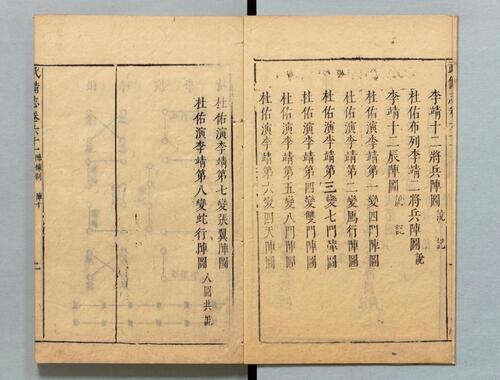 李靖十二將兵陣圖說記
杜佑布列李靖二將兵陣圖說
李靖十二辰陣圖說記
杜佑演李靖第一變四門陣圖
杜佑演李靖第二變鴈行陣圖
杜佑演李靖第三變七門陣圖
杜佑演李靖第四變雙門陣圖
杜佑演李靖第五變八門陣圖
杜佑演李靖第六變四天陣圖
杜佑演李靖第七變張翼陣圖
杜佑演李靖第八變蛇行陣圖八圖共說
武備志卷六十一陣練制陣十
一